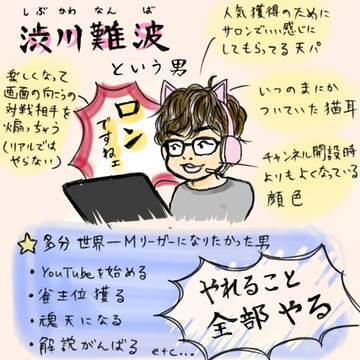 しぶかわなんば
渋川難波
という男
人気獲得のために
サロンでいい感じに
してもらってる天パ
楽しくなって
画面の向こうの
対戦相手を
煽っちゃう
(リアルでは
やらない)
ロン
ですねェ
いつのまにか
ついていた猫耳
チャンネル開設時
よりもよくなっている
顔色
多分世界一Mリーガーになりたかった男
・YouTubeを始める
・雀主位獲る
・魂天になる
・解説がんばる etc...
やれること
全部やる